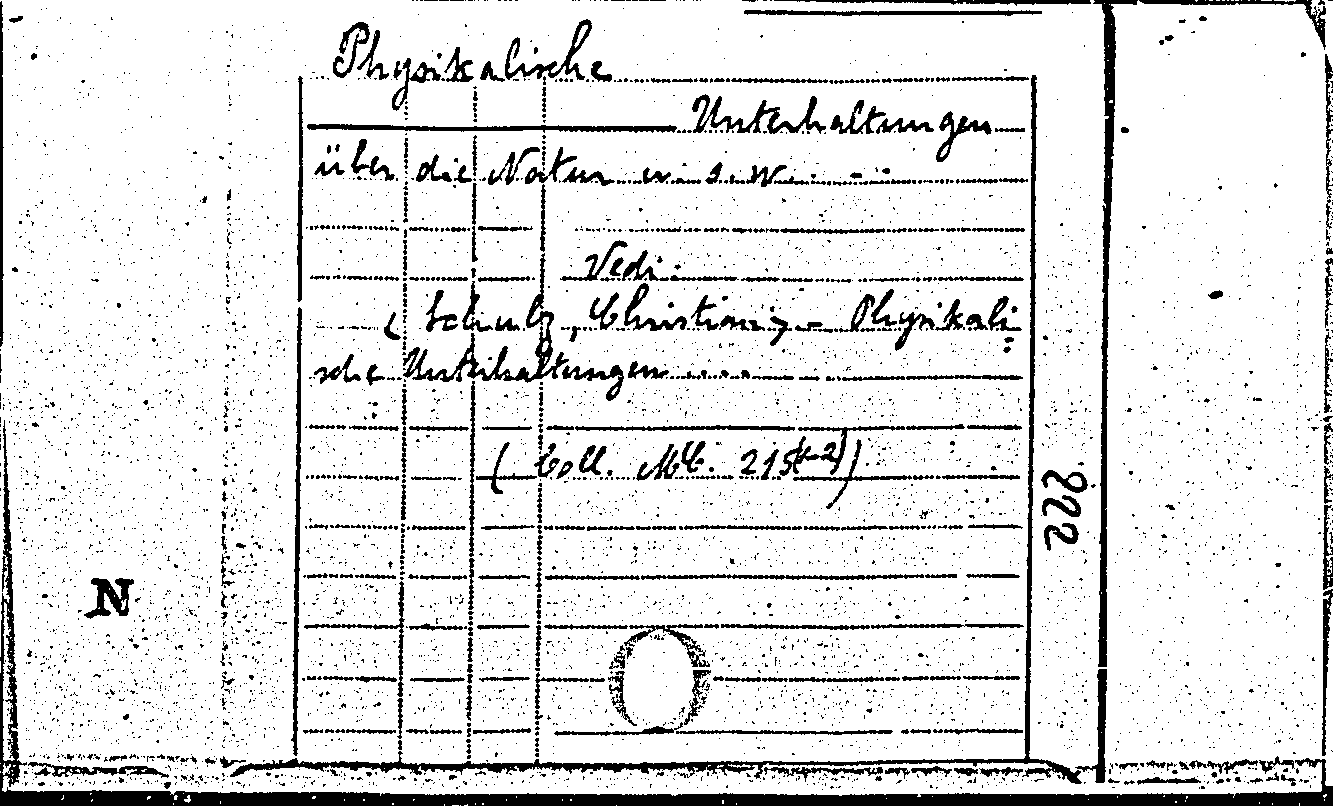 Physikalische
Unterhaltungen
über die Natur u. s. w. . - -
Vedi:
< Schulz, Christian > - Physikali=
sche Unterhaltungen ....
(Coll. MC. 215(1-2))
222
N